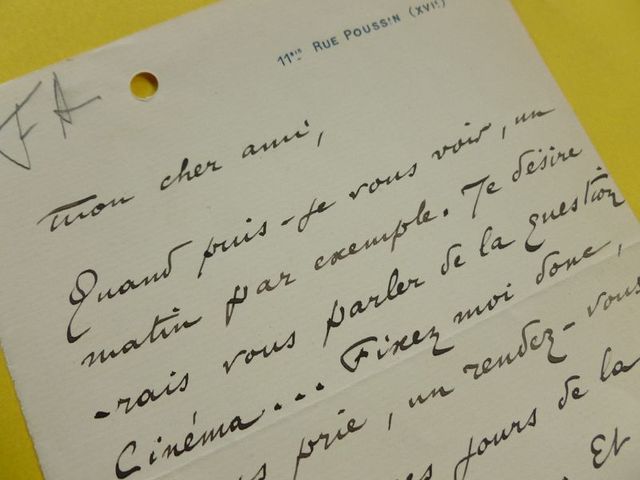 11bis RUE POUSSIN (XVIe)
FA
mon cher ami,
Quand puis-je vous voir, un
matin par exemple. Je désire
-rais vous parler de la question
Cinéma... Fixez moi donc,
prie, un rendez-vous
jours de la
Et